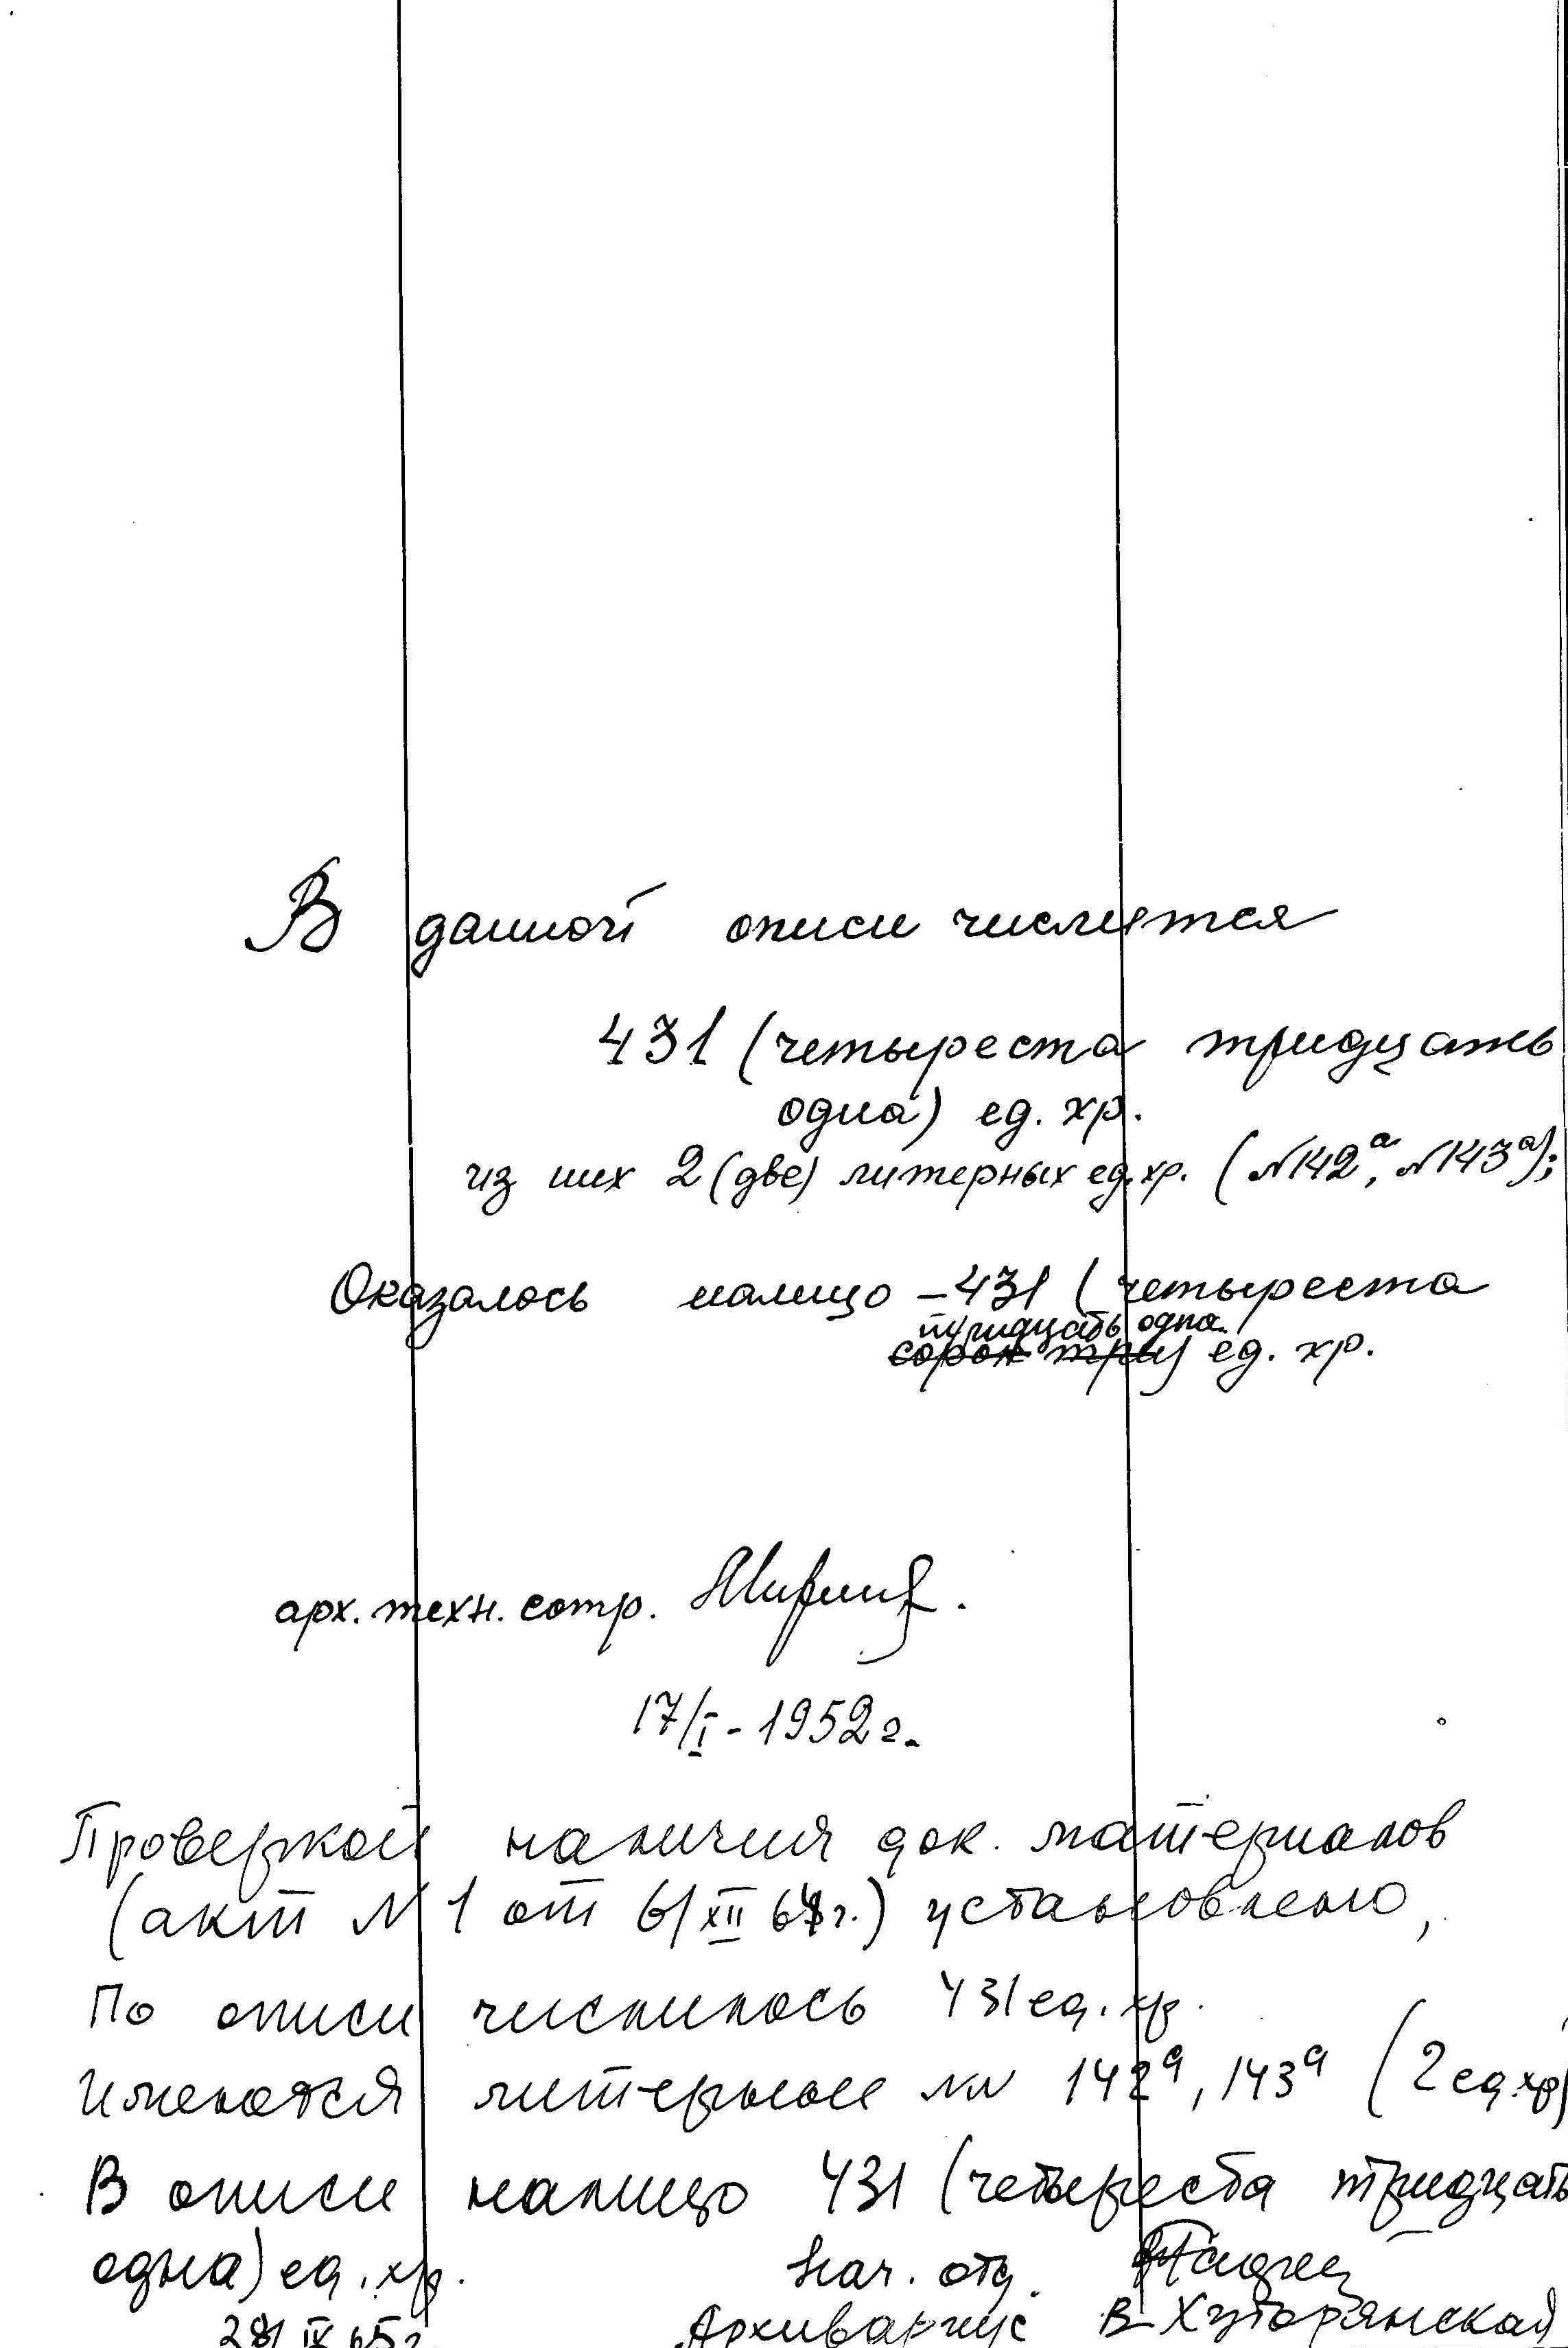 В данной описи числится
431 (четыреста тридцать
одна) ед. хр.
из них 2 (две) литерных ед. хр. (№142а, №143а);
Оказалось налицо – 431 (четыреста
тридцать одна
сорок три) ед. хр.
арх. техн. сотр.
17/I - 1952 г.
Проверкой наличия док. материалов
(акт № 1 от 6/XII 64г.) установлено,
По описи числилось 431 ед. хр.
Имеются литерные №№ 142а, 143а (2 ед. хр)
В описи налицо 431 (четыреста тридцать
одна) ед. хр. Нач. отд.
28/IX 65г. Архивариус В Хуторянская